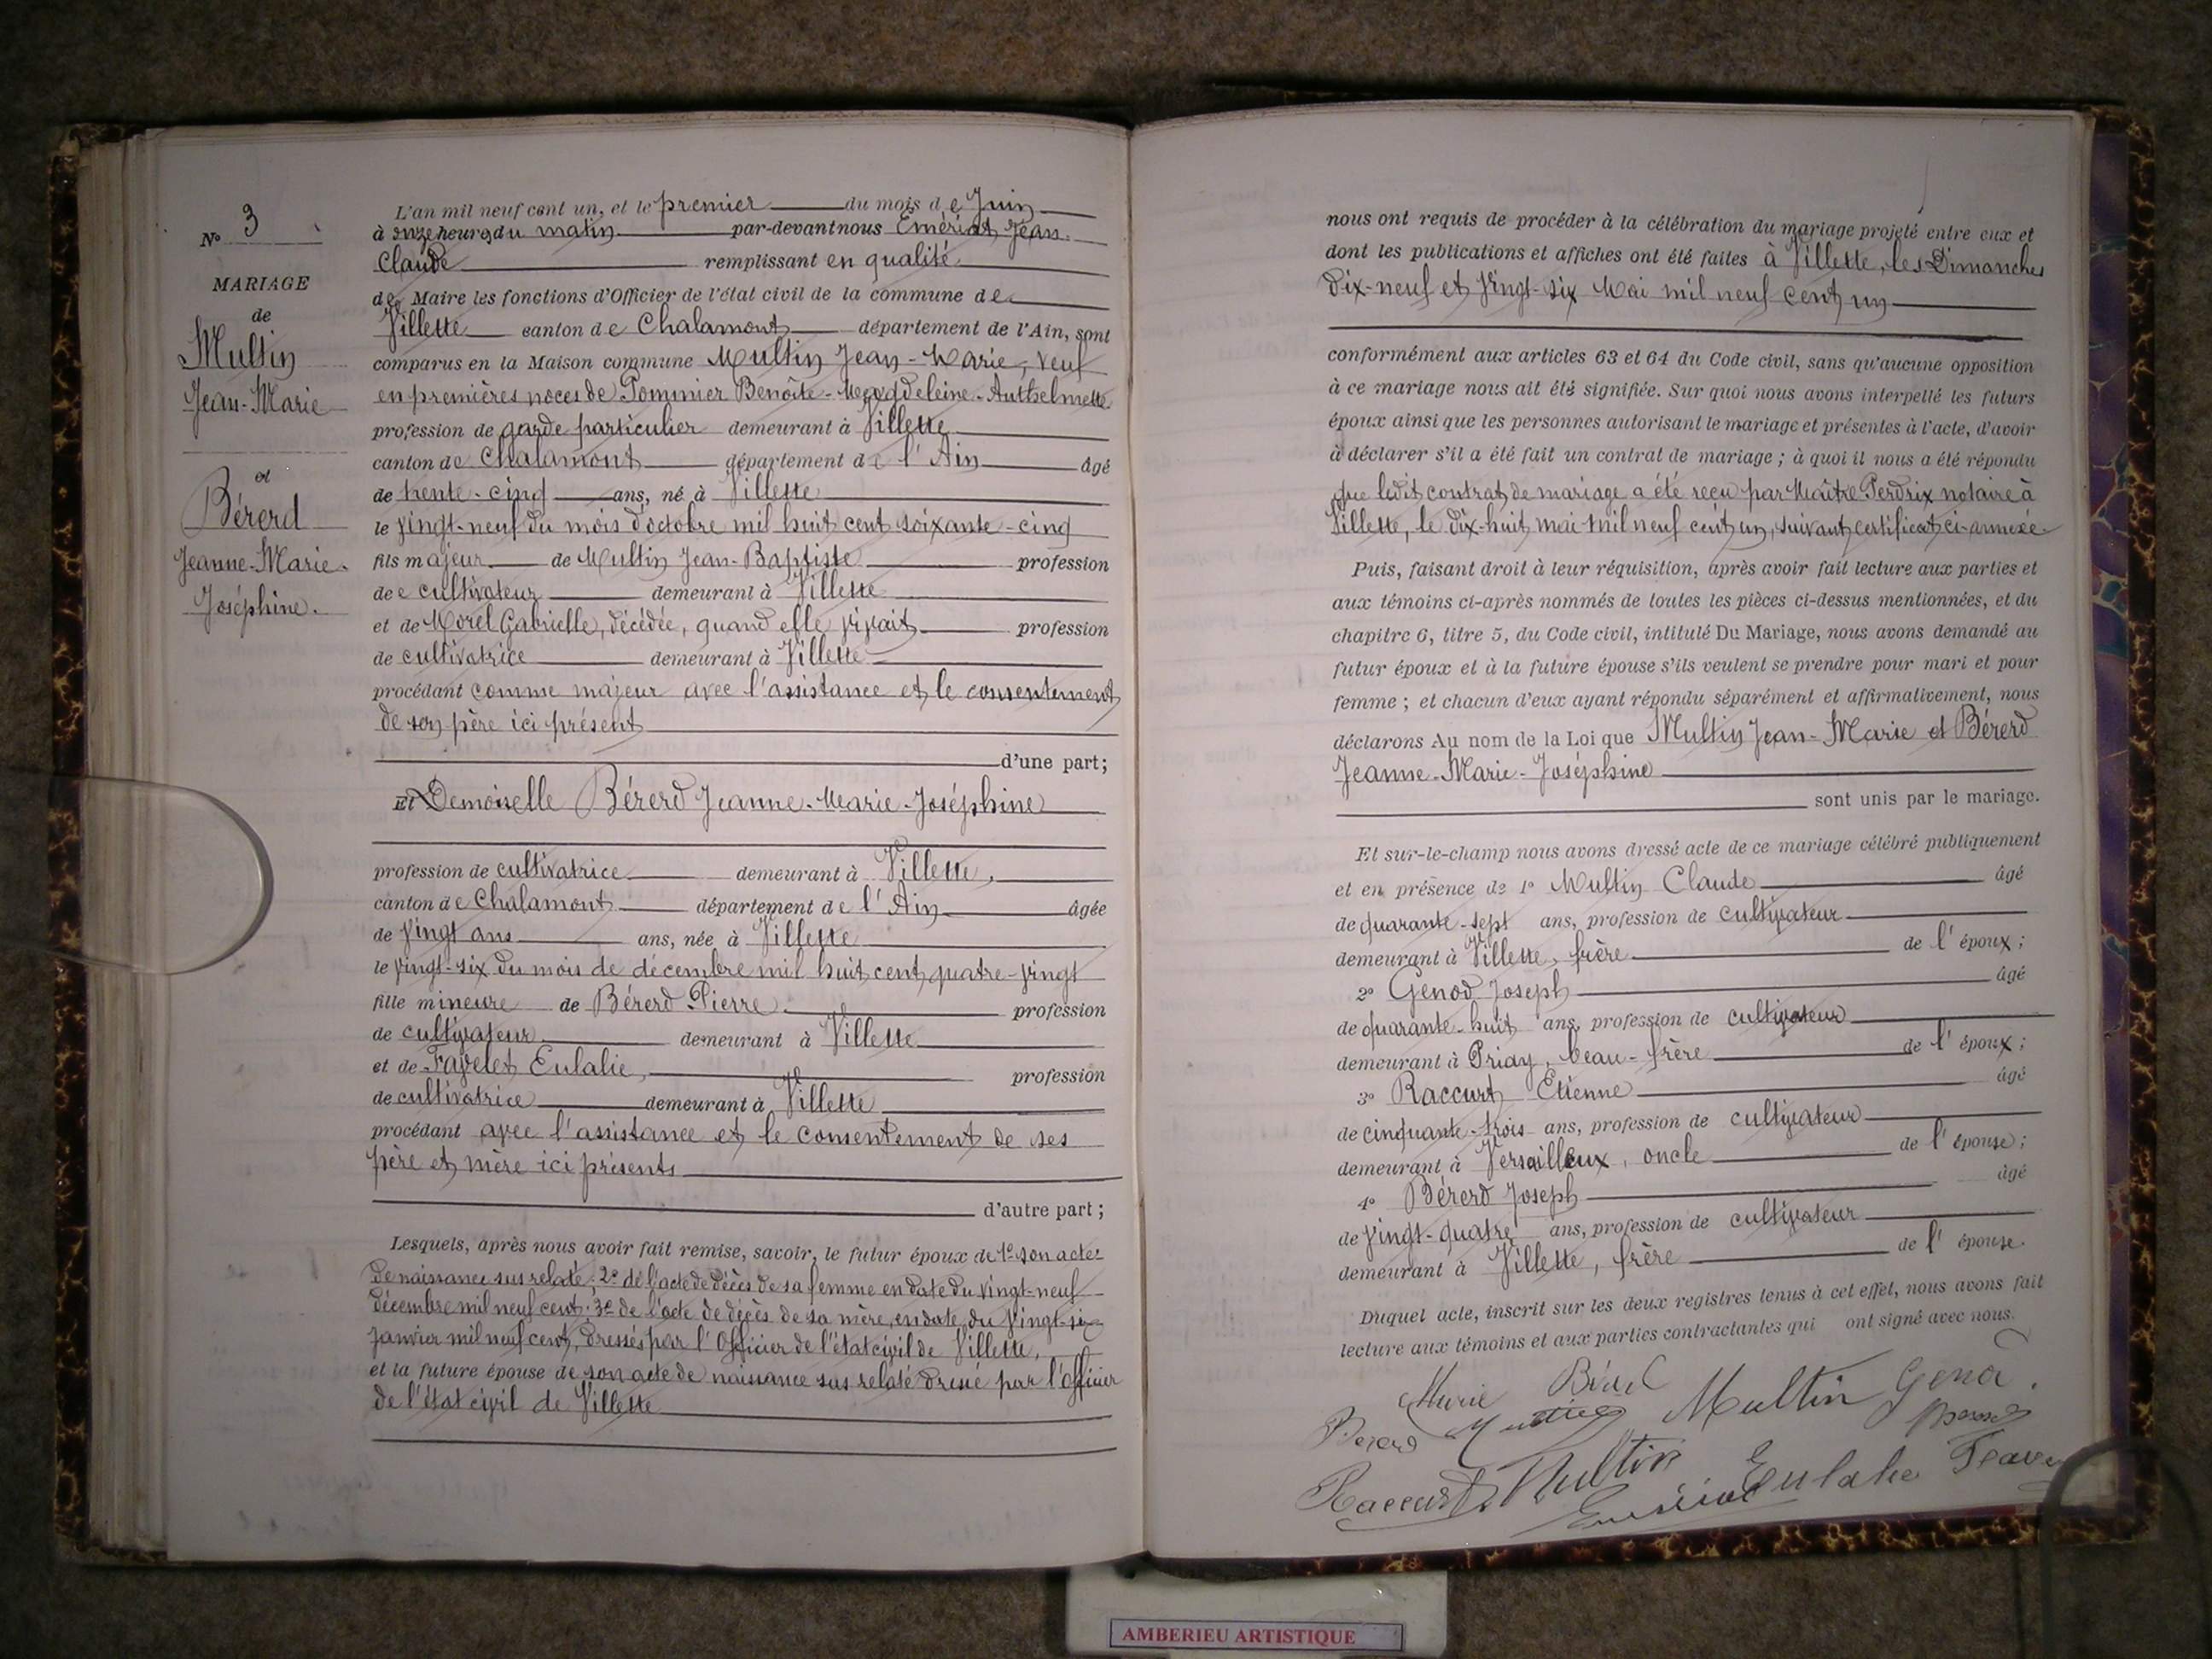 N° 3
MARIAGE
de
Multin
Jean-Marie
et
Bérerd
Jeanne-Marie-
Joséphine.
L'an mil neuf cent un, et le premier du mois de Juin
à onze heures du matin par-devant nous Emériat Jean
Claude remplissant en qualité
de Maire les fonctions d'Officier de l'état civil de la commune de
Villette canton de Chalamont département de l'Ain, sont
comparus en la Maison commune Multin Jean-Marie, veuf
en premières noces de Pommier Benoîte-Magdeleine-Anthelmette
profession de garde particulier demeurant à Villette
canton de Chalamont département de l'Ain âgé
de trente-cinq ans, né à Villette
le vingt-neuf du mois d'octobre mil huit cent soixante-cinq
fils majeur de Multin Jean-Baptiste profession
de cultivateur demeurant à Villette
et de Morel Gabrielle, décédée, quand elle vivait profession
de cultivatrice demeurant à Villette
procédant comme majeur avec l'assistance et le consentement
de son père ici présent
d'une part;
Et Demoiselle Bérerd Jeanne-Marie-Joséphine
profession de cultivatrice demeurant à Villette,
canton de Chalamont département de l'Ain âgée
de vingt ans ans, née à Villette
le vingt-six du mois de décembre mil huit cent quatre-vingt
fille mineure de Bérerd Pierre profession
de cultivateur demeurant à Villette
et de Favelet Eulalie, profession
de cultivatrice demeurant à Villette
procédant avec l'assistance et le consentement de ses
père et mère ici présents
d'autre part;
Lesquels, après nous avoir fait remise, savoir, le futur époux de 1° son acte
de naissance sus relaté; 2° de l'acte de décès de sa femme en date du vingt-neuf
décembre mil neuf cent; 3° de l'acte de décès de sa mère, en date du vingt-six
janvier mil neuf cent, dressés par l'Officier de l'état civil de Villette,
et la future épouse de son acte de naissance sus relaté dressé par l'Officier
de l'état civil de Villette
nous ont requis de procéder à la célébration du mariage projeté entre eux et
dont les publications et affiches ont été faites à Villette, les Dimanches
dix-neuf et vingt-six Mai mil neuf cent un
conformément aux articles 63 et 64 du Code civil, sans qu'aucune opposition
à ce mariage nous ait été signifiée. Sur quoi nous avons interpellé les futurs
époux ainsi que les personnes autorisant le mariage et présentes à l'acte, d'avoir
à déclarer s'il a été fait un contrat de mariage; à quoi il nous a été répondu
que ledit contrat de mariage a été reçu par Maître Perdrix notaire à
Villette, le dix-huit mai mil neuf cent un, suivant certificat ci-annexé
Puis, faisant droit à leur réquisition, après avoir fait lecture aux parties et
aux témoins ci-après nommés de toutes les pièces ci-dessus mentionnées, et du
chapitre 6, titre 5, du Code civil, intitulé Du Mariage, nous avons demandé au
futur époux et à la future épouse s'ils veulent se prendre pour mari et pour
femme; et chacun d'eux ayant répondu séparément et affirmativement, nous
déclarons Au nom de la Loi que Multin Jean-Marie et Bérerd
Jeanne-Marie-Joséphine
sont unis par le mariage.
Et sur-le-champ nous avons dressé acte de ce mariage célébré publiquement
et en présence de 1° Multin Claude âgé
de quarante-sept ans, profession de cultivateur
demeurant à Villette, frère de l'époux;
2° Genod Joseph âgé
de quarante-huit ans, profession de cultivateur
demeurant à Priay, beau-frère de l'époux;
3° Raccurt Etienne âgé
de cinquante-trois ans, profession de cultivateur
demeurant à Versailleux, oncle de l'épouse;
4° Bérerd Joseph âgé
de vingt-quatre ans, profession de cultivateur
demeurant à Villette, frère de l'épouse.
Duquel acte, inscrit sur les deux registres tenus à cet effet, nous avons fait
lecture aux témoins et aux parties contractantes qui ont signé avec nous.
Marie
Multin Genod
Berard
Raccurt Multin Eulalie
AMBERIEU ARTISTIQUE